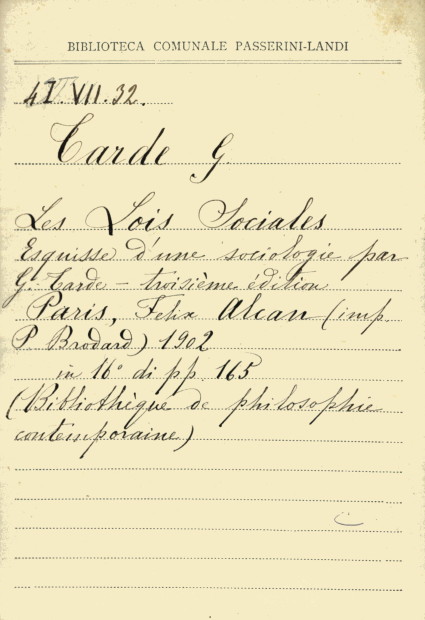 BIBLIOTECA COMUNALE PASSERINI-LANDI
4I.VII.32.
Tarde G.
Les Lois Sociales
Esquisse d'une sociologie par
G. Tarde - troisième édition
Paris, Felix Alcan (imp.
P. Brodard) 1902
in 16° di pp. 165
(Bibliothèque de philosophie
contemporaine)